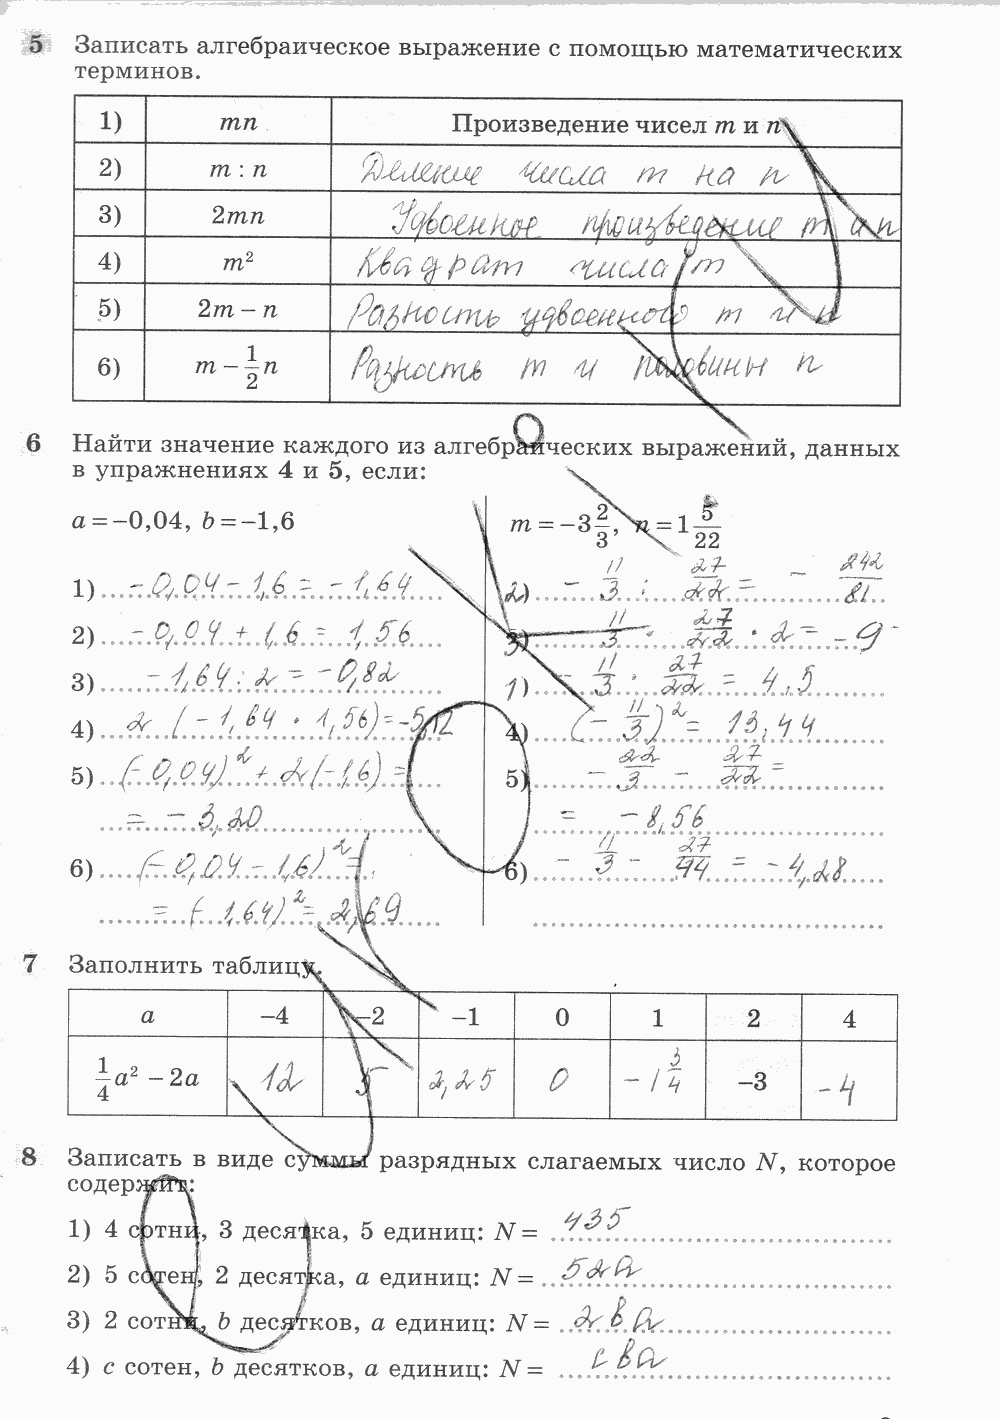 5 Записать алгебраическое выражение с помощью математических
терминов.
1) mn Произведение чисел m и n
2) m : n Деление числа m на n
3) 2mn Удвоенное произведение m и n
4) m² Квадрат числа m
5) 2m – n Разность удвоенного m и n
6) m – 1/2 n Разность m и половины n
6 Найти значение каждого из алгебраических выражений, данных
в упражнениях 4 и 5, если:
a = –0,04, b = –1,6
1) -0,04 - 1,6 = -1,64
2) -0,04 + 1,6 = 1,56
3) -1,64 : 2 = -0,82
4) 2 (-1,64 · 1,56) = -5,12
5) (-0,04)² + 2(-1,6) =
= -3,20
6) (-0,04 - 1,6)² =
= (-1,64)² = 2,69
m = –3 2/3, n = 1 5/22
2) - 11/3 : 27/22 = - 242/81
3) 11/3 · 27/22 · 2 = -9
1) - 11/3 · 27/22 = 4,5
4) (- 11/3)² = 13,44
5) - 22/3 - 27/22 =
= -8,56
6) - 11/3 - 27/44 = -4,28
7 Заполнить таблицу.
a –4 –2 –1 0 1 2 4
1/4 a² – 2a 12 5 2,25 0 -1 3/4 –3 -4
8 Записать в виде суммы разрядных слагаемых число N, которое
содержит:
1) 4 сотни, 3 десятка, 5 единиц: N = 435
2) 5 сотен, 2 десятка, a единиц: N = 52a
3) 2 сотни, b десятков, a единиц: N = 2ba
4) c сотен, b десятков, a единиц: N = cba